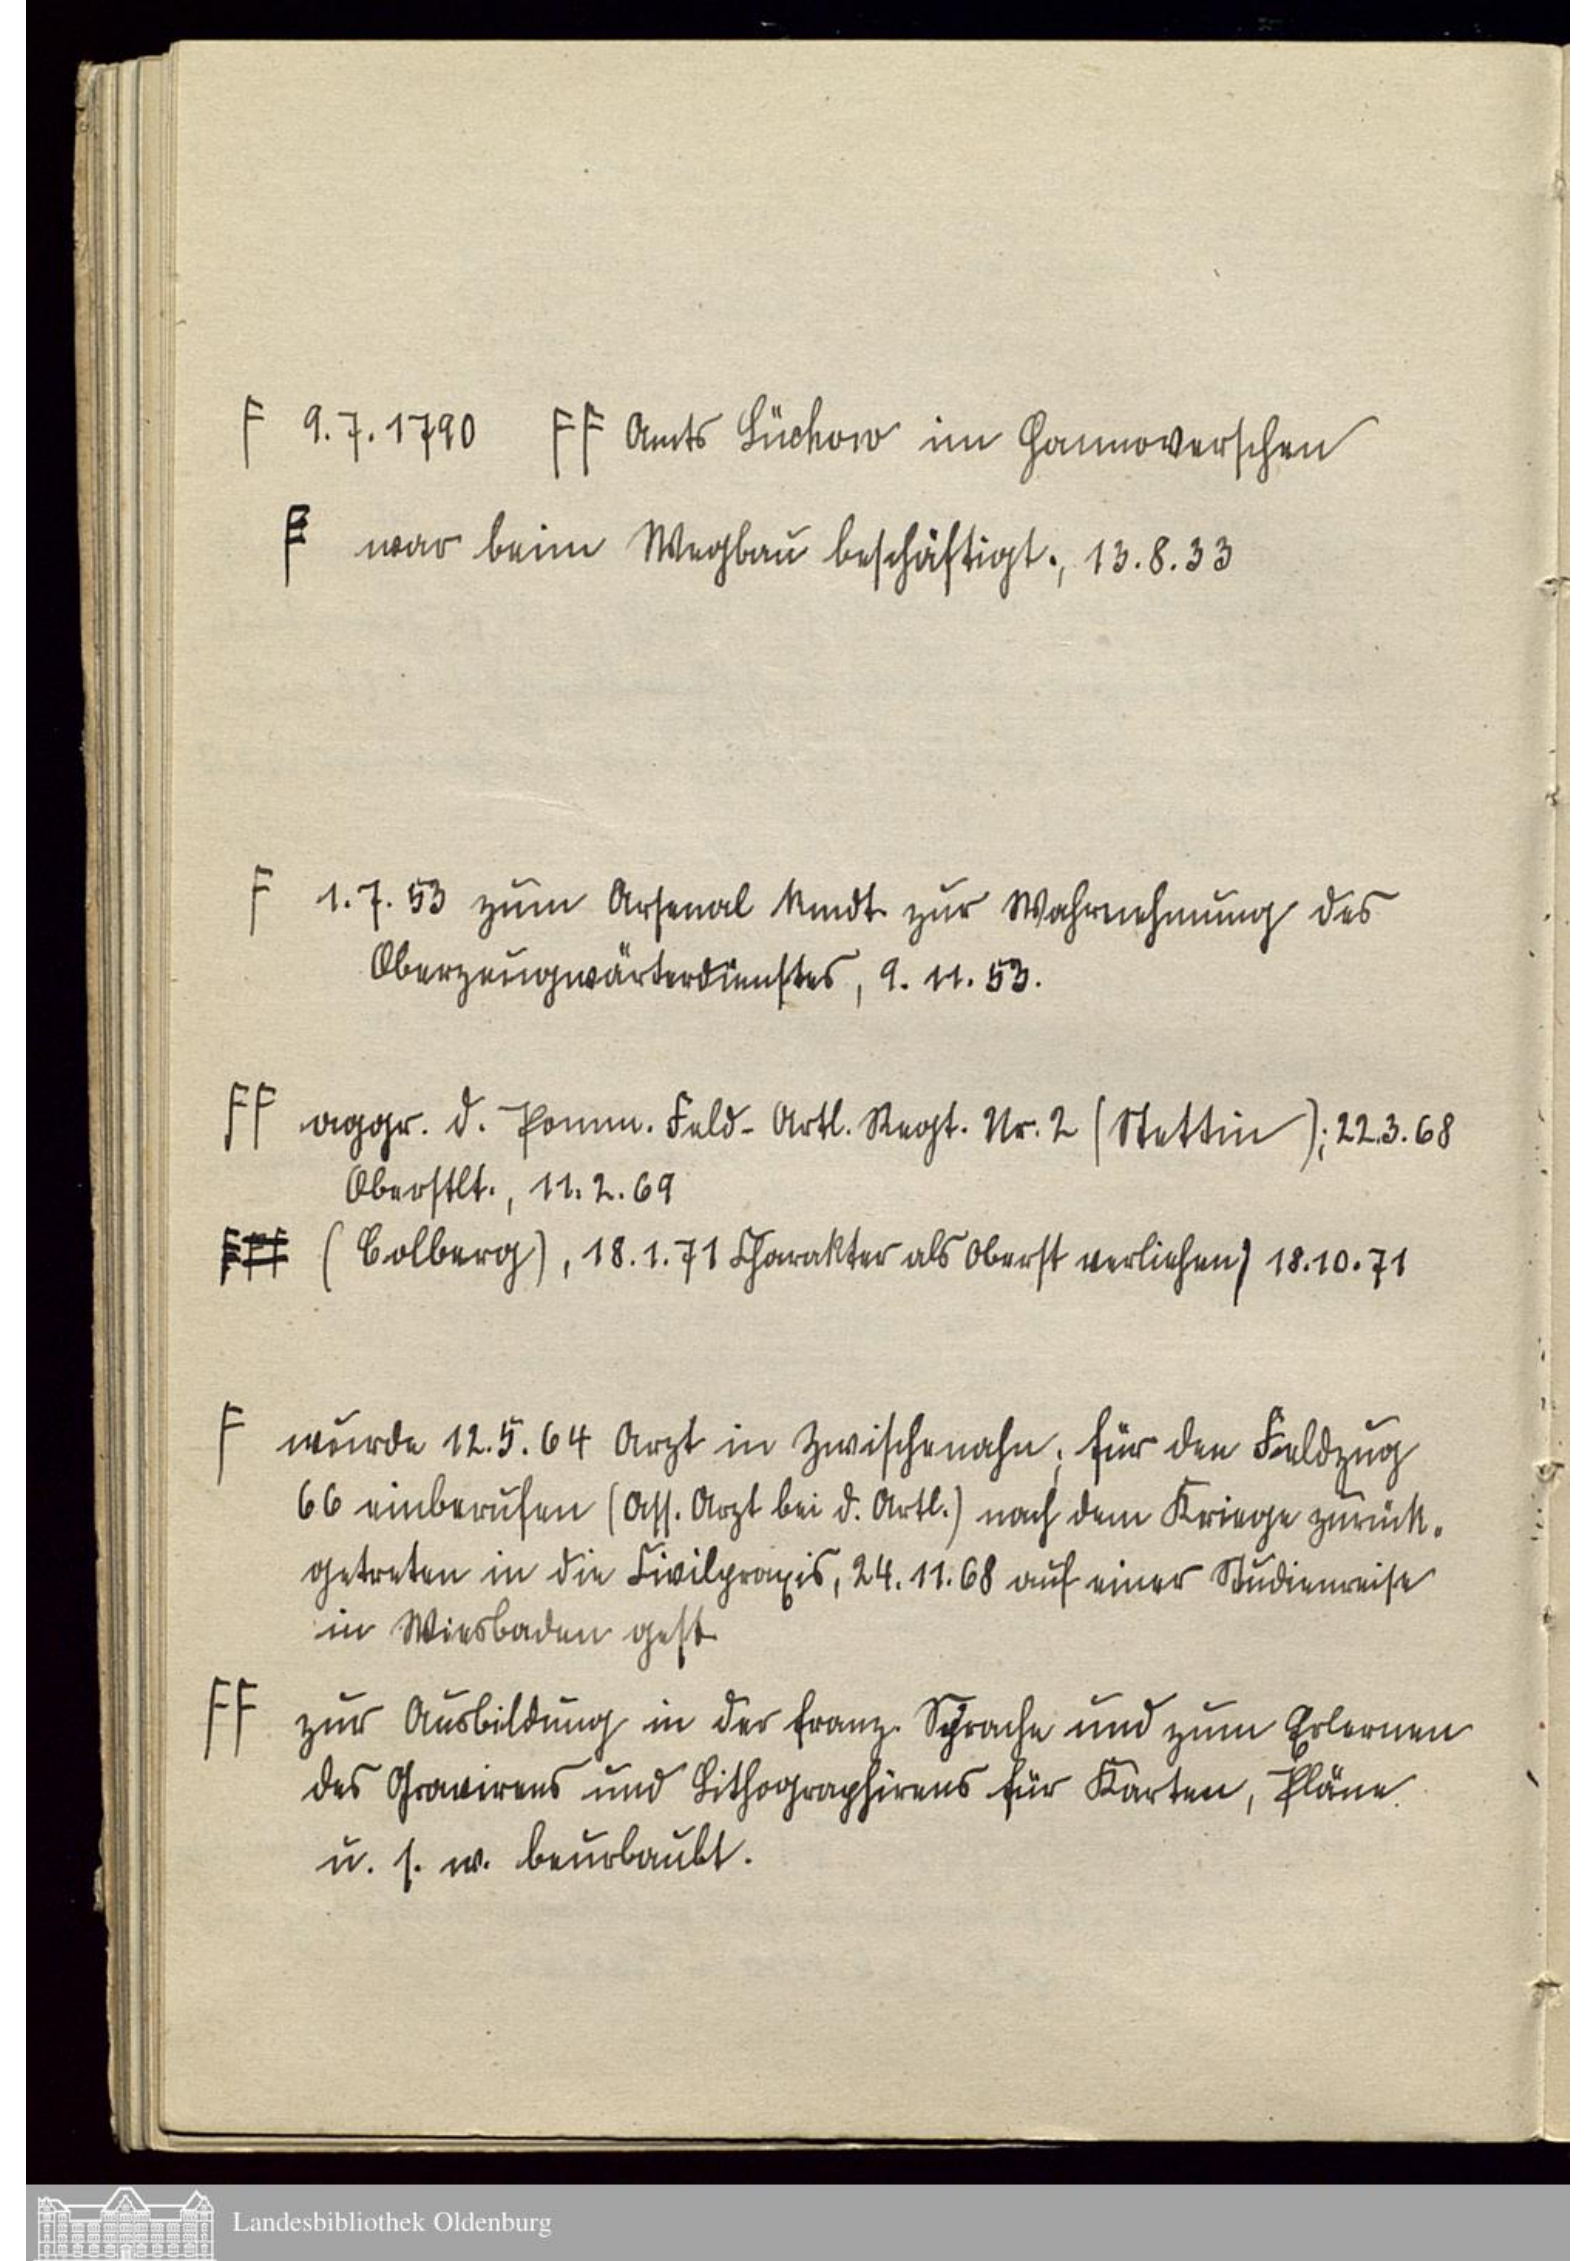 F 9.7.1790 FF Amts Lüchow im Hannoverschen
F war beim Wegbau beschäftigt., 13.8.33
F 1.7.53 zum Arsenal kmdt. zur Wahrnehmung des
Oberzeugwärterdienstes, 9.11.53.
FF aggr. d. Pomm. Feld-Artl. Regt. Nr. 2 (Stettin); 22.3.68
Oberstlt., 11.2.69
FFF (Colberg), 18.1.71 Charakter als Oberst verliehen) 18.10.71
F wurde 12.5.64 Arzt in Zwischenahn; für den Feldzug
66 einberufen (Ass. Arzt bei d. Artl.) nach dem Kriege zurück-
getreten in die Civilpraxis, 24.11.68 auf einer Studienreise
in Wiesbaden gest.
FF zur Ausbildung in der franz. Sprache und zum Erlernen
des Gravirens und Lithographirens für Karten, Pläne
u. s. w. beurlaubt.
Landesbibliothek Oldenburg